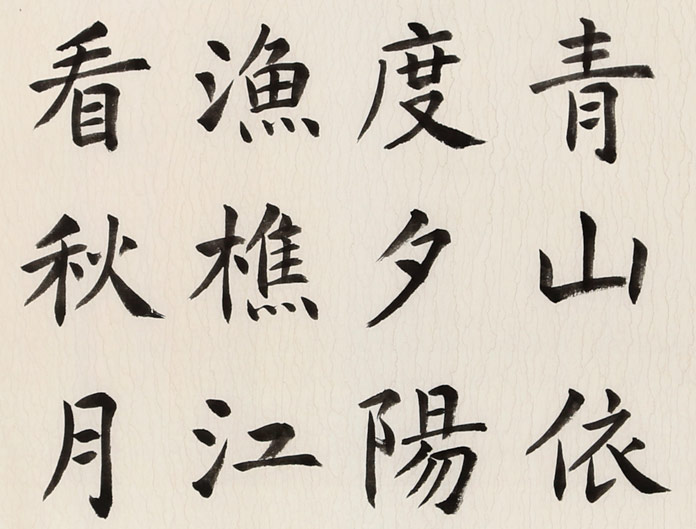 青山依
度夕陽
漁樵江
看秋月